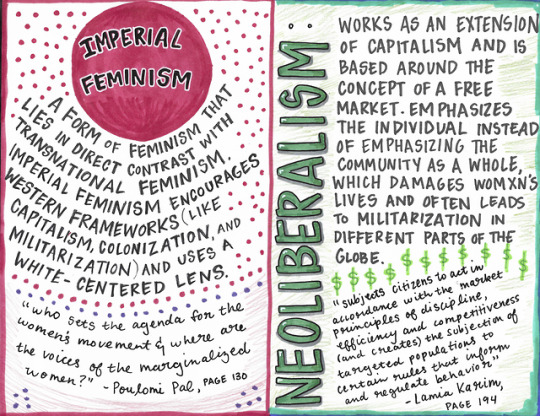 IMPERIAL
FEMINISM
A FORM OF FEMINISM THAT
LIES IN DIRECT CONTRAST WITH
TRANSNATIONAL FEMINISM.
IMPERIAL FEMINISM ENCOURAGES
WESTERN FRAMEWORKS (LIKE
CAPITALISM, COLONIZATION, AND
MILITARIZATION) AND USES A
WHITE-CENTERED LENS.
"who sets the agenda for the
women's movement & where are
the voices of the marginalized
women?" - Poulomi Pal, PAGE 130
NEOLIBERALISM:
WORKS AS AN EXTENSION
OF CAPITALISM AND IS
BASED AROUND THE
CONCEPT OF A FREE
MARKET. EMPHASIZES
THE INDIVIDUAL INSTEAD
OF EMPHASIZING THE
COMMUNITY AS A WHOLE,
WHICH DAMAGES WOMXN'S
LIVES AND OFTEN LEADS
TO MILITARIZATION IN
DIFFERENT PARTS OF THE
GLOBE.
$ $ $ $ $ $ $ $ $ $ $ $
"subjects citizens to act in
accordance with the market
principles of discipline,
efficiency and competitiveness
(and creates) the subjection of
targeted populations to
certain rules that inform
and regulate behavior"
-Lamia Karim,
PAGE 194